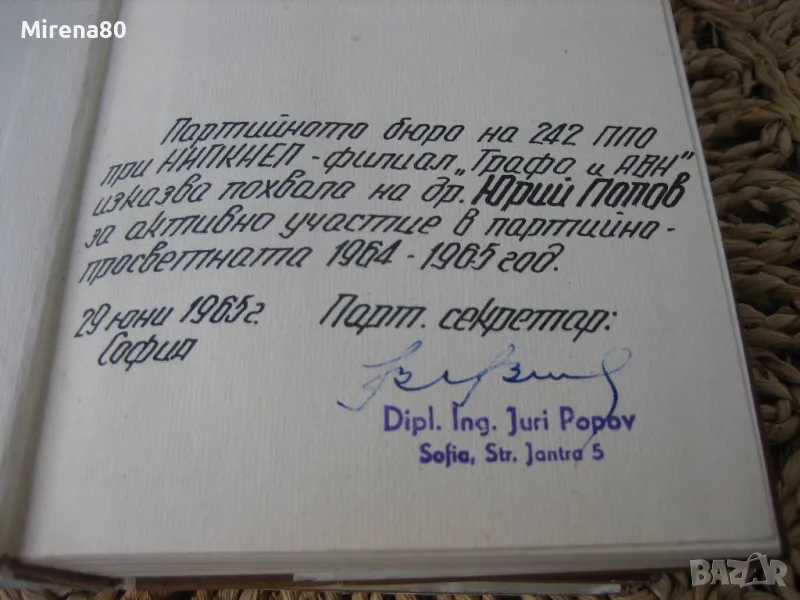 Mirena80
Партийното бюро на 242 ППО
при НИПКИЕП - филиал „Трафа и АВН"
изказва похвала на др. Юрий Попов
за активно участие в партийно-
просветната 1964 - 1965 год.
29 юни 1965 г.
София
Парт. секретар:
Dipl. Ing. Juri Popov
Sofia, Str. Jantra 5
BAZAR